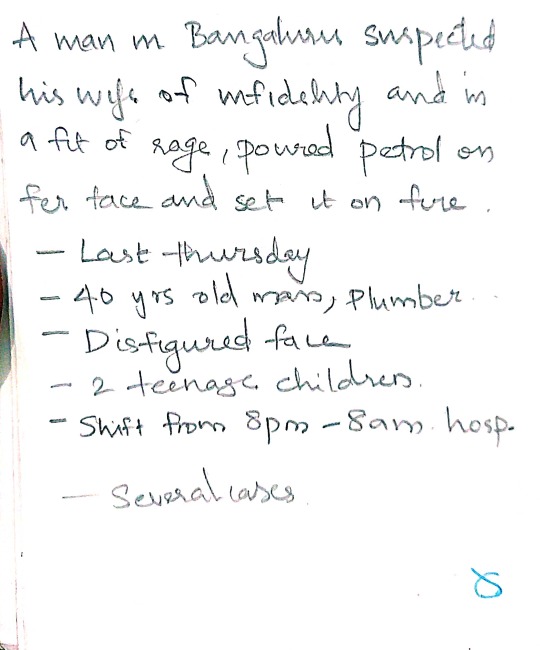 A man in Bangaluru suspected
his wife of infidelity and in
a fit of rage, poured petrol on
her face and set it on fire.
- Last thursday
- 40 yrs old man, Plumber
- Disfigured face
- 2 teenage children.
- Shift from 8pm - 8am. hosp.
- Several cases.